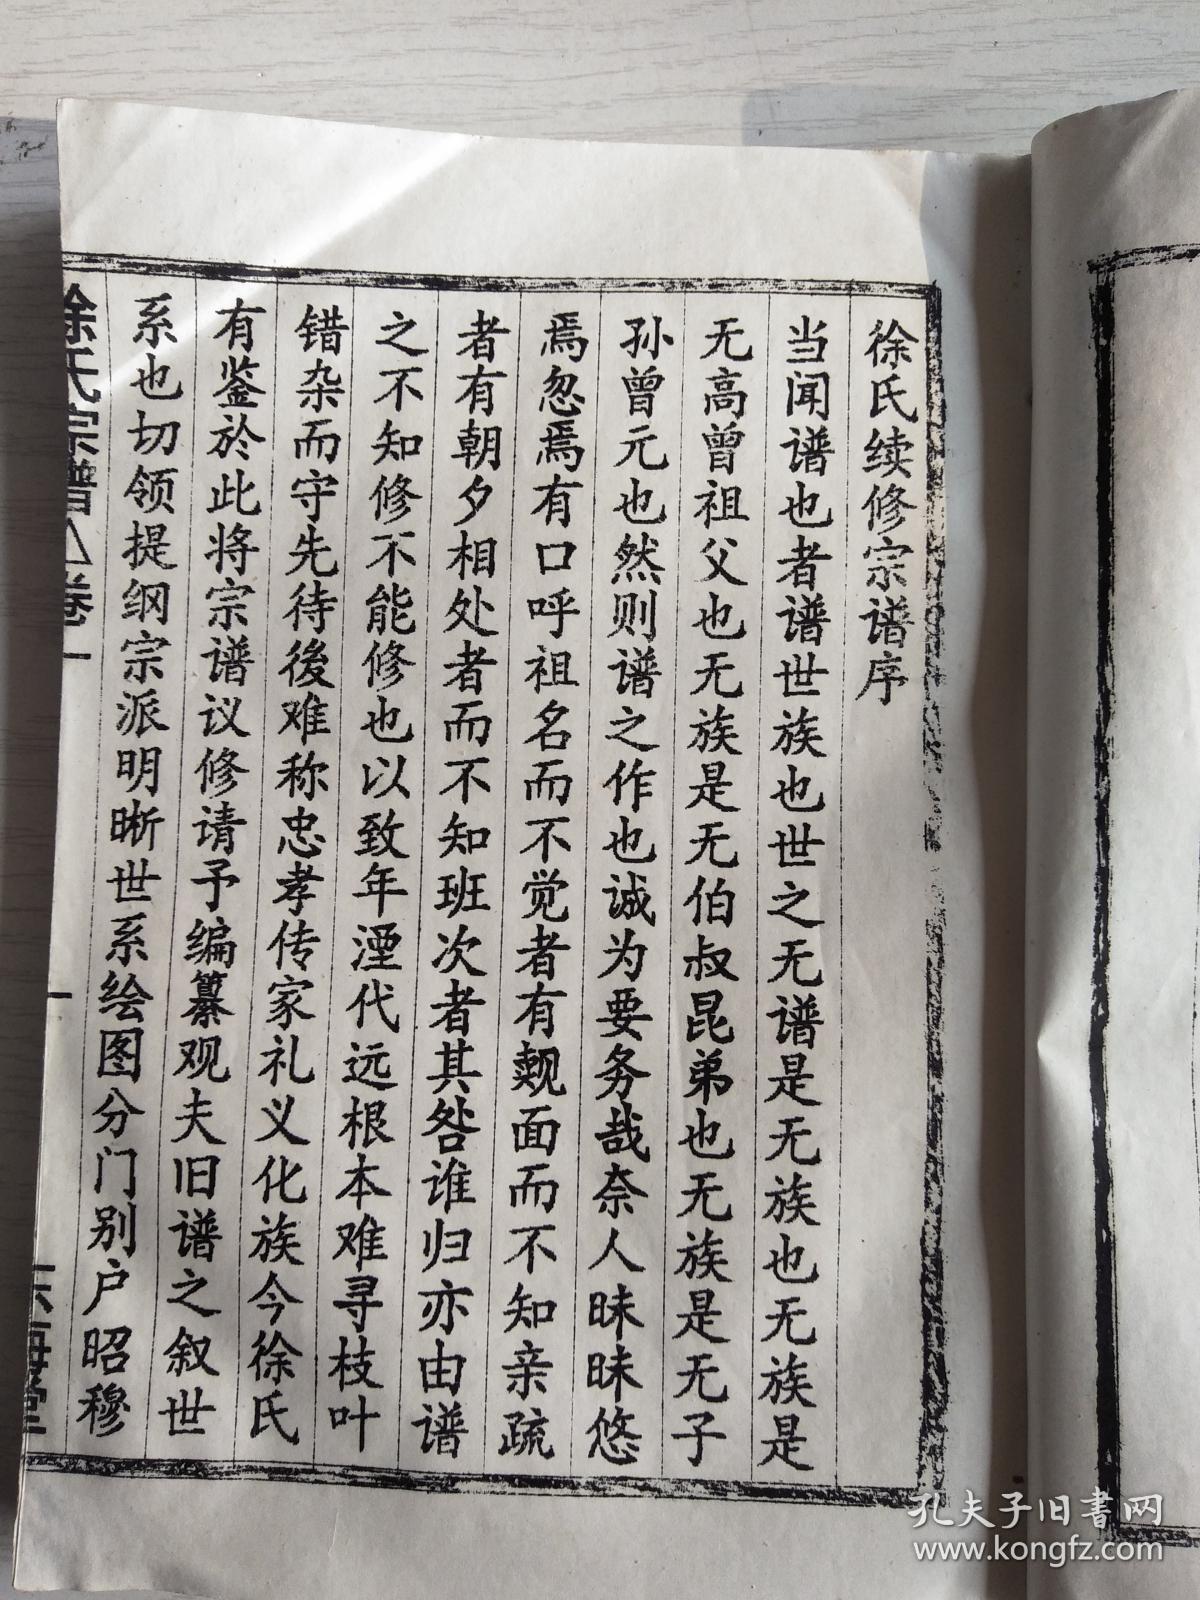 徐氏续修宗谱序
当闻谱也者谱世族也世之无谱是无族也无族是
无高曾祖父也无族是无伯叔昆弟也无族是无子
孙曾元也然则谱之作也诚为要务哉奈人昧昧悠
焉忽焉有口呼祖名而不觉者有觌面而不知亲疏
者有朝夕相处者而不知班次者其咎谁归亦由谱
之不知修不能修也以致年湮代远根本难寻枝叶
错杂而守先待後难称忠孝传家礼义化族今徐氏
有鉴於此将宗谱议修请予编纂观夫旧谱之叙世
系也切领提纲宗派明晰世系绘图分门别户昭穆
徐氏宗谱 卷一 一 东海堂
孔夫子旧書网
www.kongfz.com